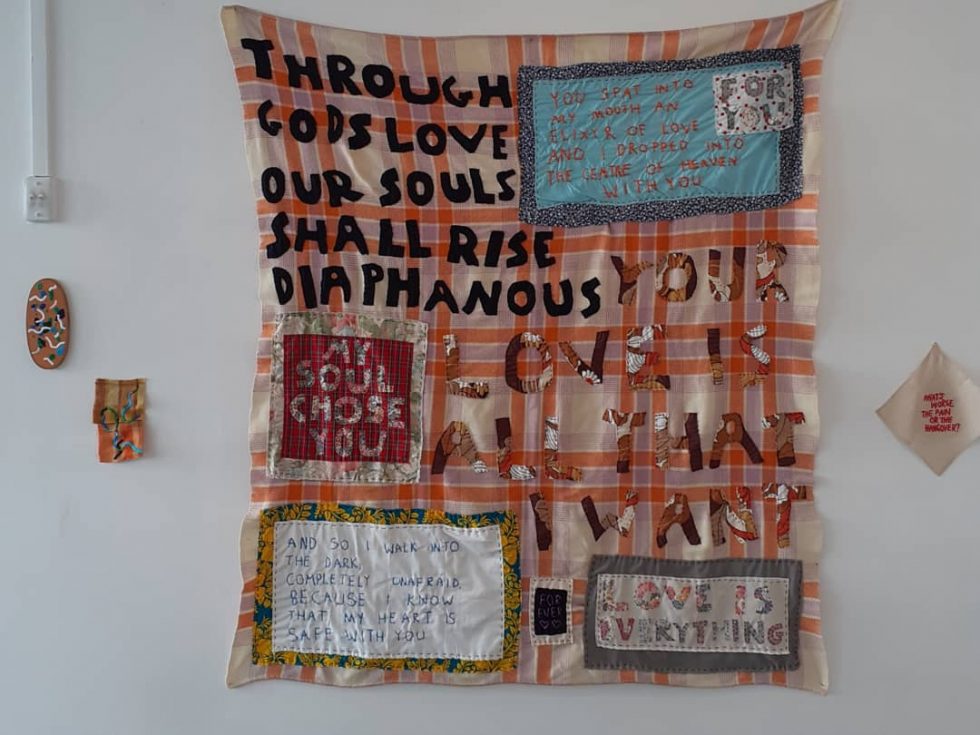 THROUGH
GODS LOVE
OUR SOULS
SHALL RISE
DIAPHANOUS
YOU SPAT INTO
MY MOUTH AN
ELIXIR OF LOVE
AND I DROPPED INTO
THE CENTRE OF HEAVEN
WITH YOU
FOR
YOU
YOUR
LOVE IS
ALL THAT
I WANT
MY
SOUL
CHOSE
YOU
AND SO I WALK INTO
THE DARK,
COMPLETELY UNAFRAID,
BECAUSE I KNOW
THAT MY HEART IS
SAFE WITH YOU
FOR
EVER
LOVE IS
EVERYTHING
WHAT'S
WORSE
THE PAIN
OR THE
HANGOVER?